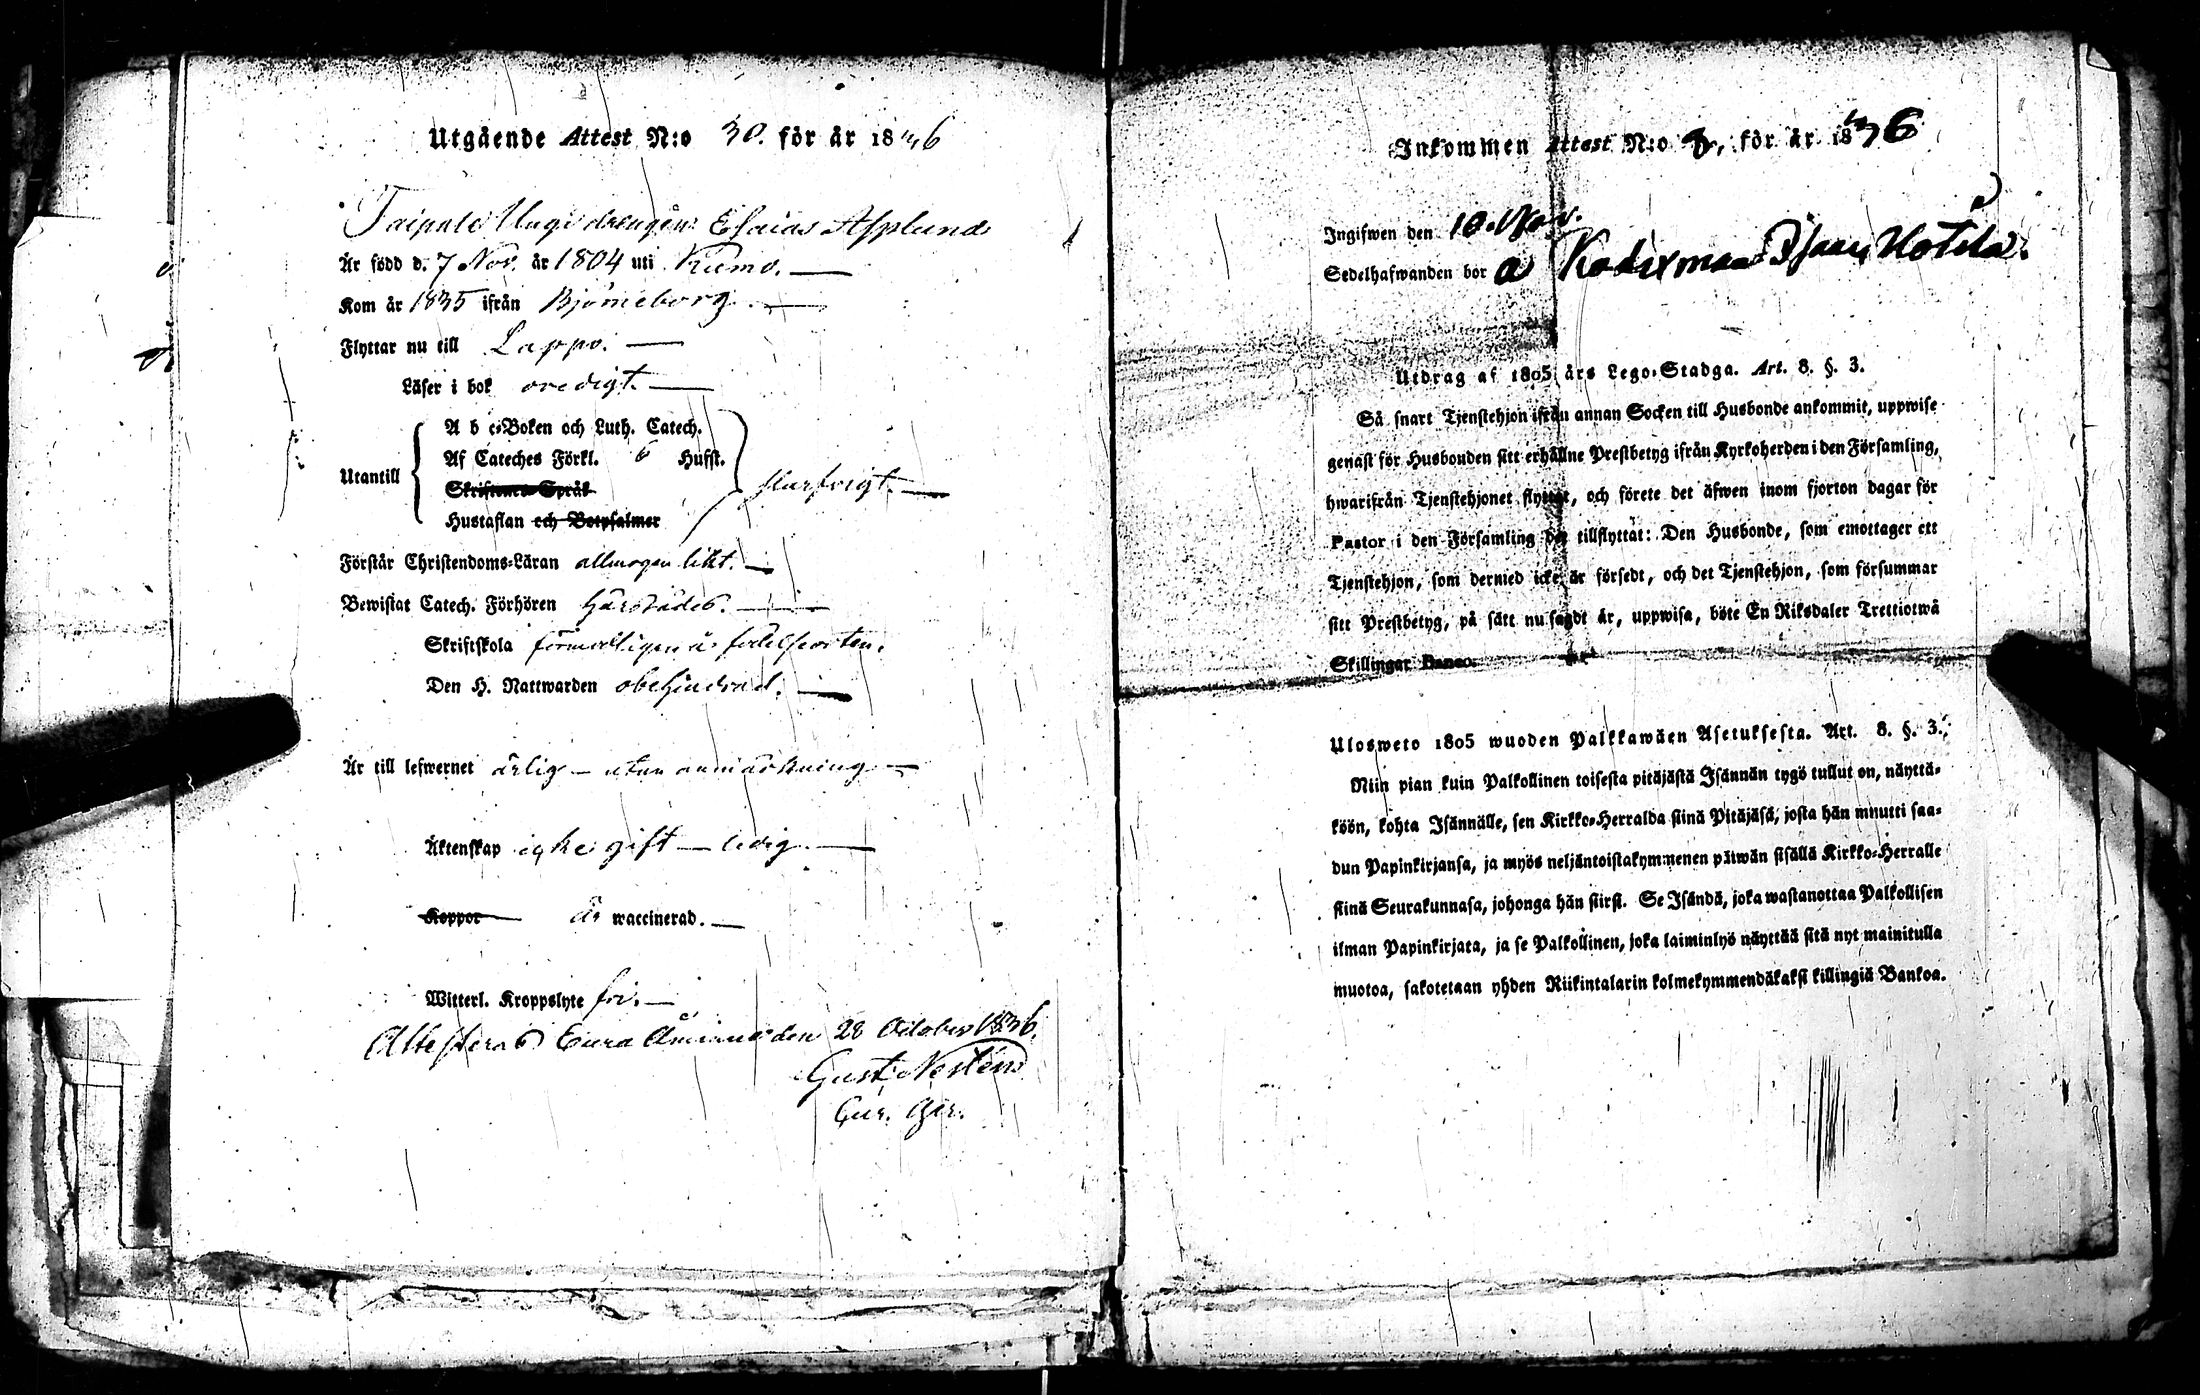 Utgående Attest N:o 30. för år 1836
Taipale Unge drengen Esaias Asplund
Är född d. 7 Nov. år 1804 uti Kumo.
Kom år 1835 ifrån Björneborg.
Flyttar nu till Lappo.
Läser i bok oredigt.
A b c=Boken och Luth. Catech.
Af Cateches Förkl. 6 Hufst.
Utantill
Skriftenes Språk
Hustaflan och Botpsalmer
Förstår Christendoms=Läran allmogen likt.
Bewistat Catech. Förhören härstädes.
Skriftskola förmodligen å födelseorten.
Den H. Nattwarden obehindrad.
Är till lefwernet ärlig – utan anmärkning
Äktenskap icke gift – ledig
Koppor är waccinerad.
Witterl. Kroppslyte fri.
Attesteras Eura Åminne den 28 October 1836.
Gust. Nestén
Inkommen Attest N:o för år 1836
Ingifwen den 10. Nov.
Sedelhafwanden bor å
Utdrag af 1805 års Lego=Stadga. Art. 8. §. 3.
Så snart Tjenstehjon ifrån annan Socken till Husbonde ankommit, uppwise
genast för Husbonden sitt erhållne Prestbetyg ifrån Kyrkoherden i den Församling,
hwarifrån Tjenstehjonet flyttat, och förete det äfwen inom fjorton dagar för
Pastor i den Församling det tillflyttat: Den Husbonde, som emottager ett
Tjenstehjon, som dermed icke är försedt, och det Tjenstehjon, som försummar
sitt Prestbetyg, på sätt nu sagdt är, uppwisa, böte En Riksdaler Trettiotwå
Skillingar Banco.
Ulosweto 1805 wuoden Palkkawäen Asetuksesta. Art. 8. §. 3.
Niin pian kuin Palkollinen toisesta pitäjästä Isännän tygö tullut on, näyttä=
köön, kohta Isännälle, sen Kirkko=Herralda siinä Pitäjäsä, josta hän muutti saa=
dun Papinkirjansa, ja myös neljäntoistakymmenen päiwän sisällä Kirkko=Herralle
siinä Seurakunnasa, johonga hän siirsi. Se Isändä, joka wastanottaa Palkollisen
ilman Papinkirjata, ja se Palkollinen, joka laiminlyö näyttää sitä nyt mainitulla
muotoa, sakotetaan yhden Riikintalarin kolmekymmendäkaksi killingiä Bankoa.